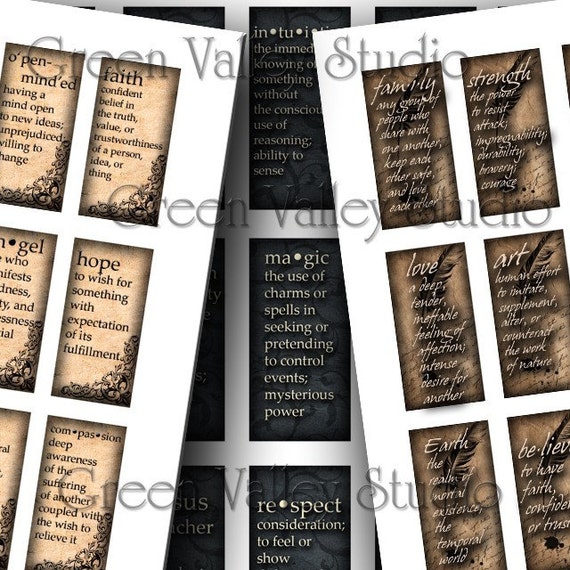 Green Valley Studio
o'pen-
mind'ed
having a
mind open
to new ideas;
unprejudiced;
willing to
change
faith
confident
belief in
the truth,
value, or
trustworthiness
of a person,
idea, or
thing
Green Valley Studio
hope
to wish for
something
with
expectation
of its
fulfillment.
com•pas•sion
deep
awareness
of the
suffering
of another
coupled with
the wish to
relieve it
in•tu•iti
the immed
knowing o
something
without
the conscious
use of
reasoning;
ability to
sense
ma•gic
the use of
charms or
spells in
seeking or
pretending
to control
events;
mysterious
power
re•spect
consideration;
to feel or
show
family
any group of
people who
share with
one another;
keep each
other safe,
and love
each other
strength
the power
to resist
attack;
impregnability;
durability;
bravery;
courage
love
a deep,
tender,
ineffable
feeling of
affection;
intense
desire for
another
art
human effort
to imitate,
supplement,
alter, or
counteract
the work
of nature
Earth
the
realm of
mortal
existence;
the
temporal
world
be•lieve
to have
faith,
confidence
or trust
Green Valley Studio